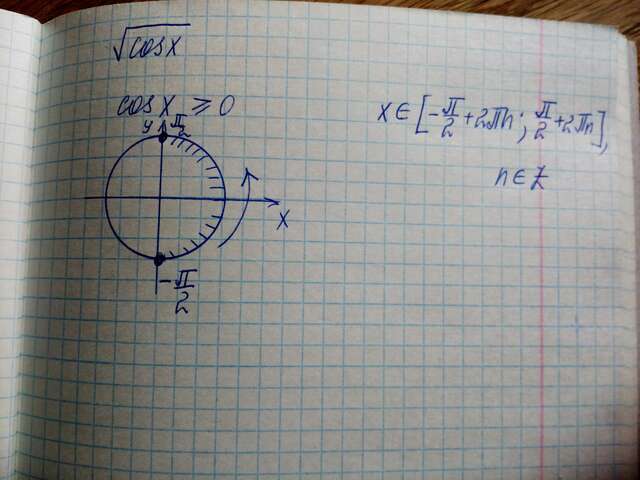 √cosx
cosx ⩾ 0
y π/2
x
-π/2
x ∈ [-π/2 + 2πn; π/2 + 2πn],
n ∈ Z